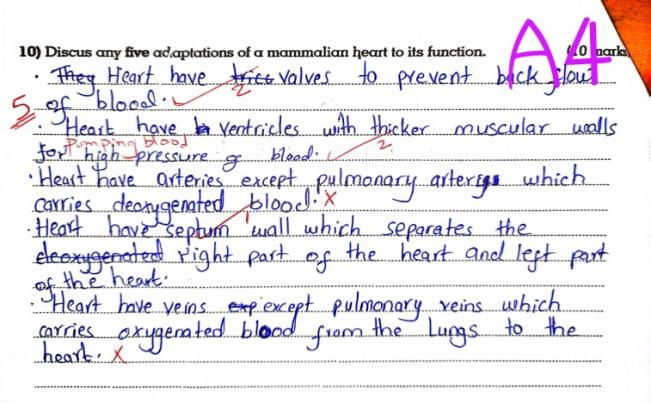 10) Discus any five adaptations of a mammalian heart to its function. (10 marks
A4
· They Heart have valves to prevent back flow
2
5
of bloood.
· Heart have ventricles with thicker muscular walls
Pumping blood
for high pressure of blood.
2
· Heart have arteries except pulmonary arteries which
carries deoxygenated blood. X
· Heart have septum wall which separates the
1
deoxygenated right part of the heart and left part
of the heart.
· Heart have veins exp except pulmonary veins which
carries oxygenated blood from the Lungs to the
heart. X